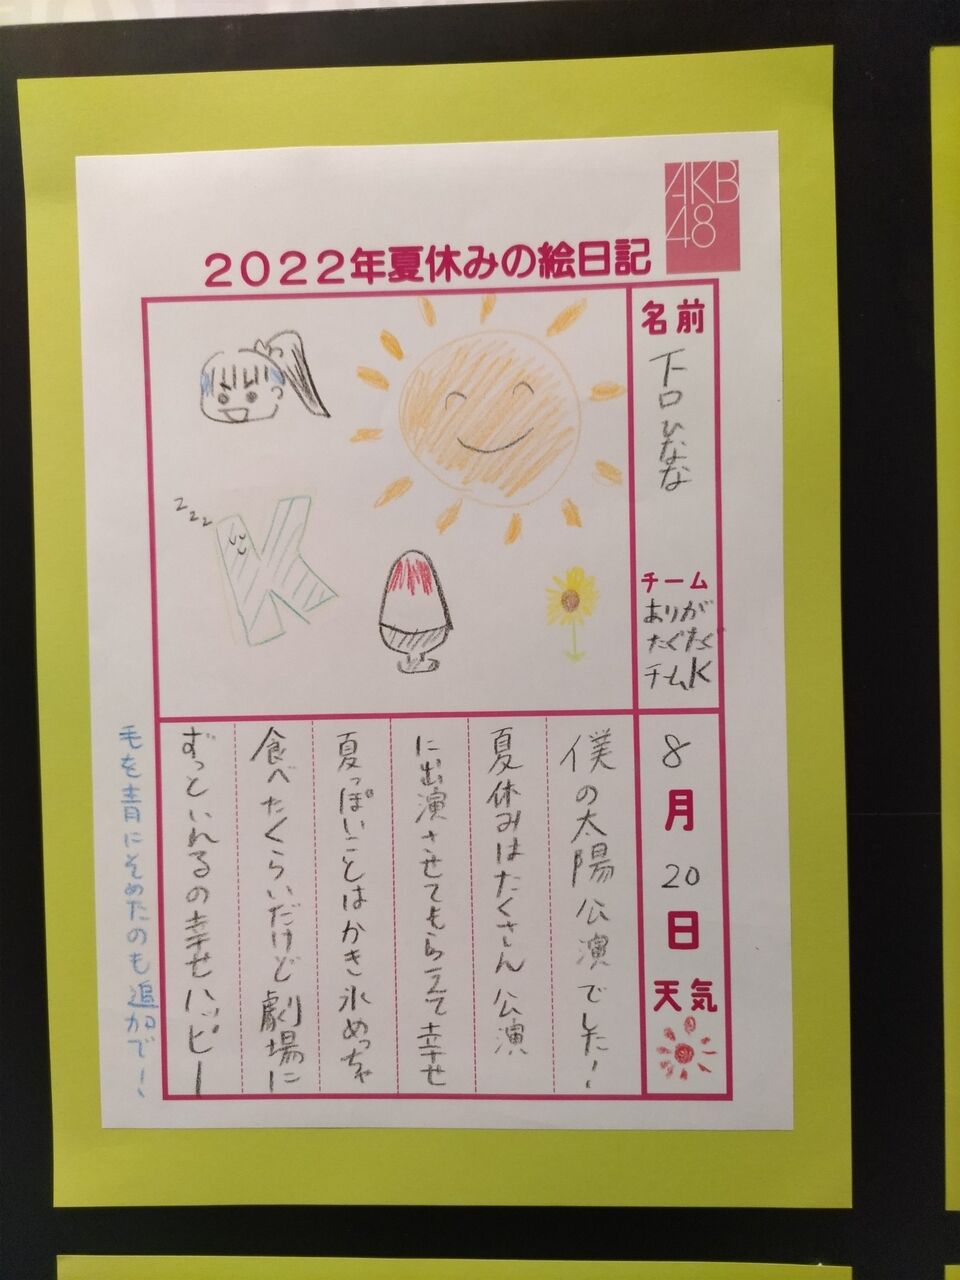 AKB
48
2022年夏休みの絵日記
名前
下口ひなな
チーム
ありが
たくただ
チームK
8月20日
天気
zzz
K
僕の太陽公演でした!
夏休みはたくさん公演
に出演させてもらえて幸せ
夏っぽいことはかき氷めっちゃ
食べたくらいだけど劇場に
ずっといれるの幸せハッピー
毛を青にそめたのも追加で!